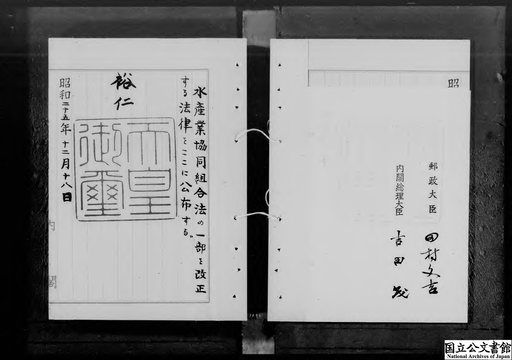 水產業協同組合法の一部を改正
する法律をここに公布する。
裕仁
天皇
御璽
昭和二十五年十二月十八日
内閣
昭
郵政大臣
田村文吉
内閣総理大臣
吉田茂
国立公文書館
National Archives of Japan